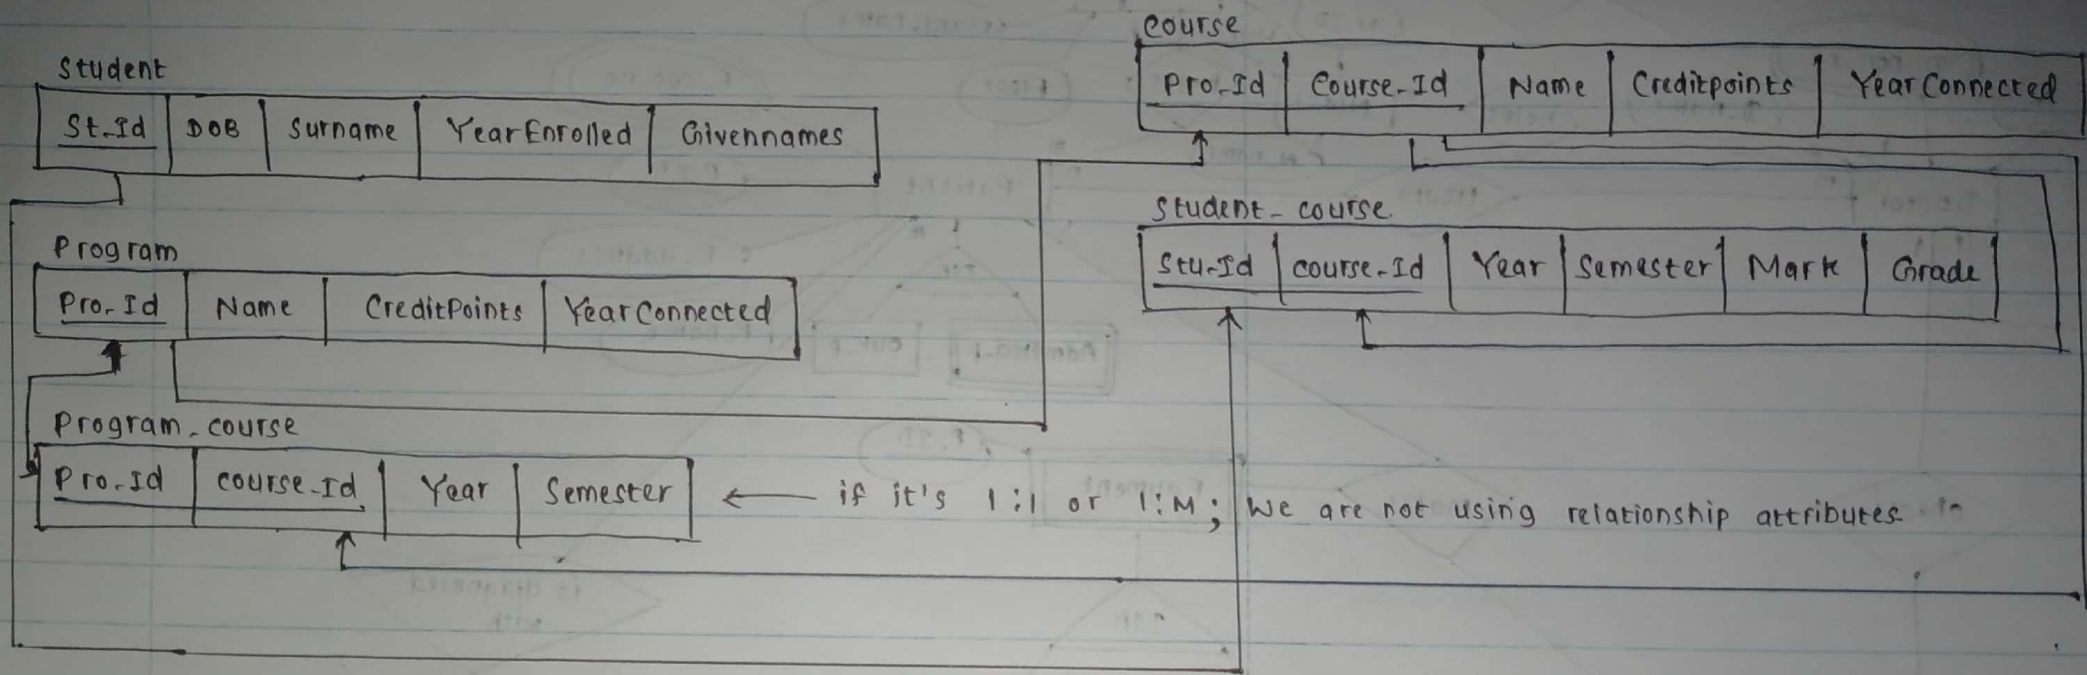 Student
St_Id DOB Surname YearEnrolled Givennames
Program
Pro_Id Name CreditPoints YearConnected
Program_course
Pro_Id course_Id Year Semester ← if it's 1:1 or 1:M; We are not using relationship attributes
Course
Pro_Id Course_Id Name Creditpoints YearConnected
Student_course
Stu_Id course_Id Year Semester Mark Grade